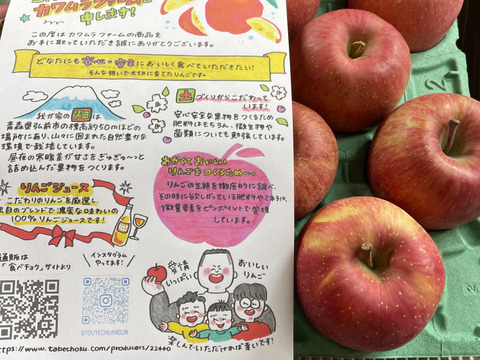 カワムラファームと
申します!
この度は カワムラ ファームの商品を
お手に取っていただき誠にありがとうございます。
どなたにも安心・安全においしく食べていただきたい!
そんな想いで大切に育てたりんごです。
我が家の畑は
青森県弘前市の標高約50mほどの
場所にあり、山々に囲まれた自然豊かな
環境で栽培しています。
昼夜の寒暖差が甘さをぎゅぎゅ〜っと
詰め込んだ果物をつくります。
土づくりからこだわって
います!
安心安全な果物をつくるため
肥料はもちろん、微生物や
菌類についても勉強しています。
おおきくておいしい
りんごをつくるため…
りんごの生態を徹底的に調べ、
その時に必要としている肥料やミネラル、
微量要素をピンポイントで管理
しています。
りんごジュース
こだわりのりんごを厳選し、
独自のブレンドで濃密な味わいの
100%りんごジュースです!
通販は
「食べチョク」サイトより
インスタグラム
やってます!
@YOUYECHUANCUN
https://www.tabechoku.com/producers/22440
愛情
いっぱい
おいしい
りんご
楽しんでいただければ幸いです!